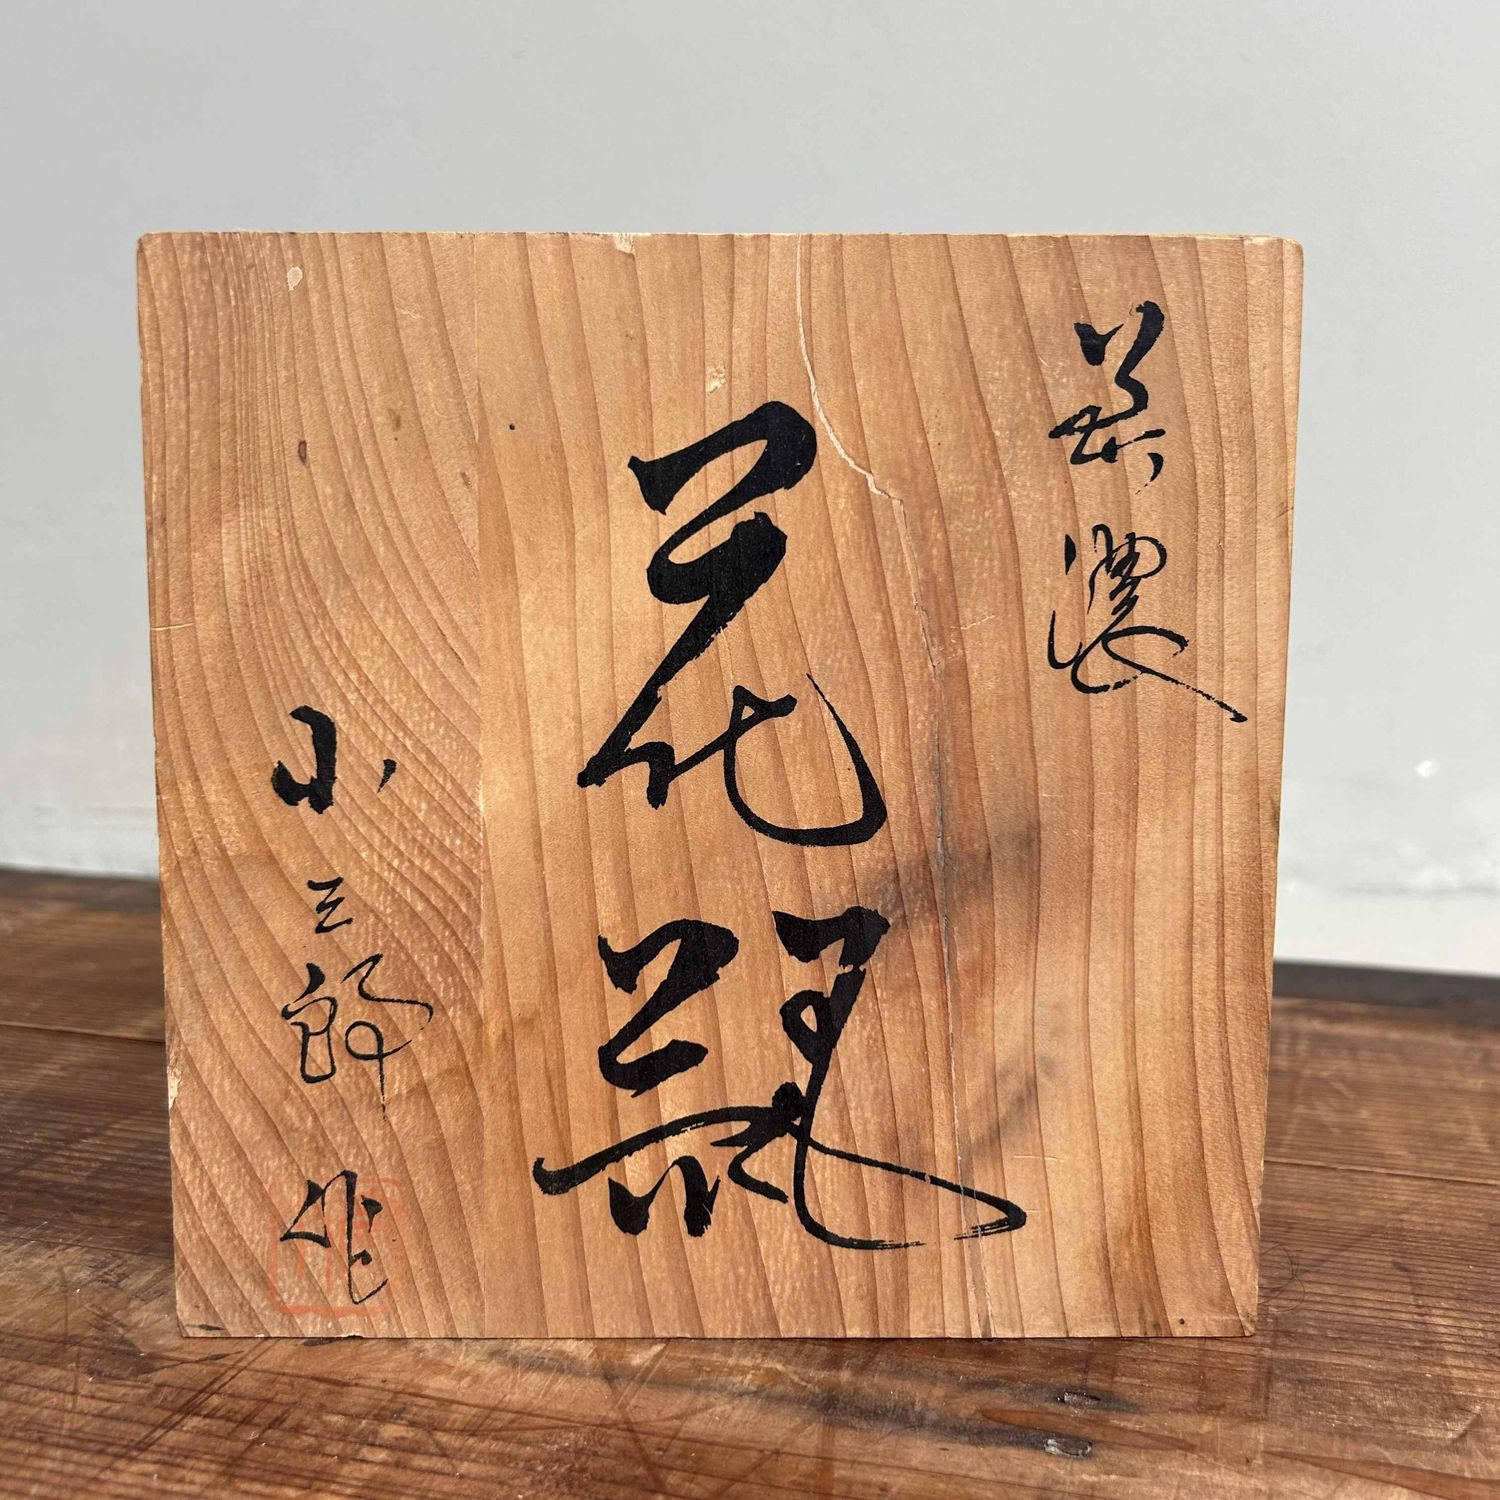 美濃
花瓶
小三郎 作